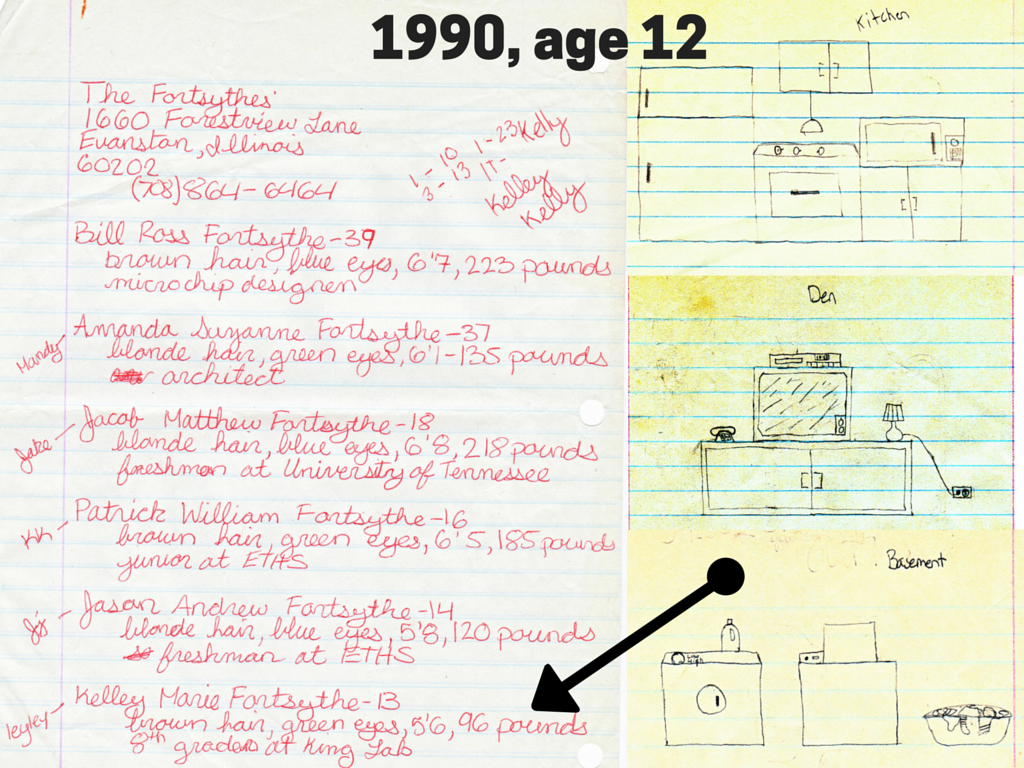 1990, age 12
The Fortsythes'
1660 Forestview Lane
Evanston, Illinois
60202
(708)864-6464
1-10
3-13
1-23 Kelly
IT-
Kelley
Kelly
Bill Ross Fortsythe-39
brown hair, blue eyes, 6'7, 223 pounds
microchip designer
Mandy
Amanda Suzanne Fortsythe-37
blonde hair, green eyes, 6'1-135 pounds
architect
Jake
Jacob Matthew Fortsythe-18
blonde hair, blue eyes, 6'8, 218 pounds
freshman at University of Tennessee
KK
Patrick William Fortsythe-16
brown hair, green eyes, 6'5, 185 pounds
junior at ETHS
Jason Andrew Fortsythe-14
blonde hair, blue eyes, 5'8, 120 pounds
freshman at ETHS
Kelley Marie Fortsythe-13
brown hair, green eyes, 5'6, 96 pounds
8th grader at King Lab
Kitchen
Den
Basement